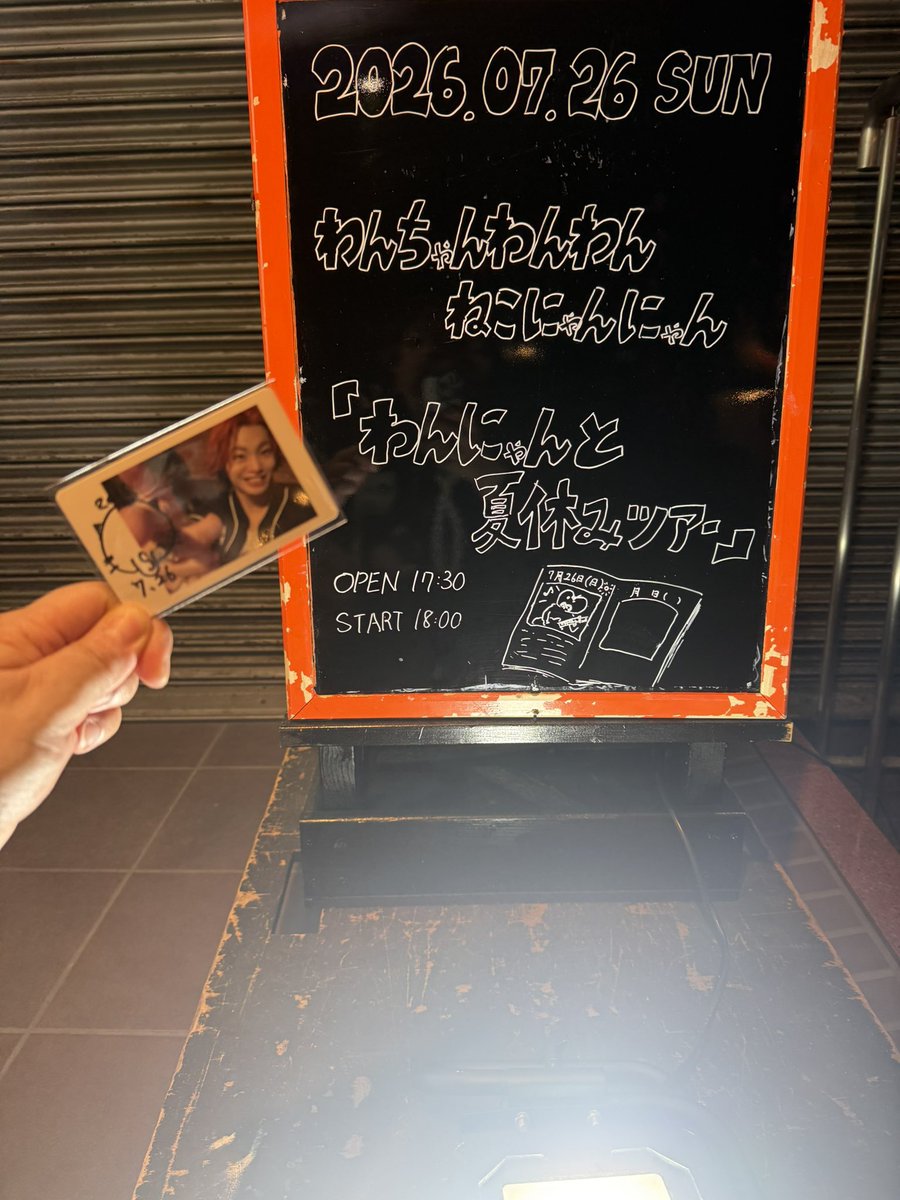 2026.07.26 SUN
わんちゃんわんわん
ねこにゃんにゃん
「わんにゃんと
夏休みツアー」
OPEN 17:30
START 18:00
7月26日(日)
月 日( )
7.26